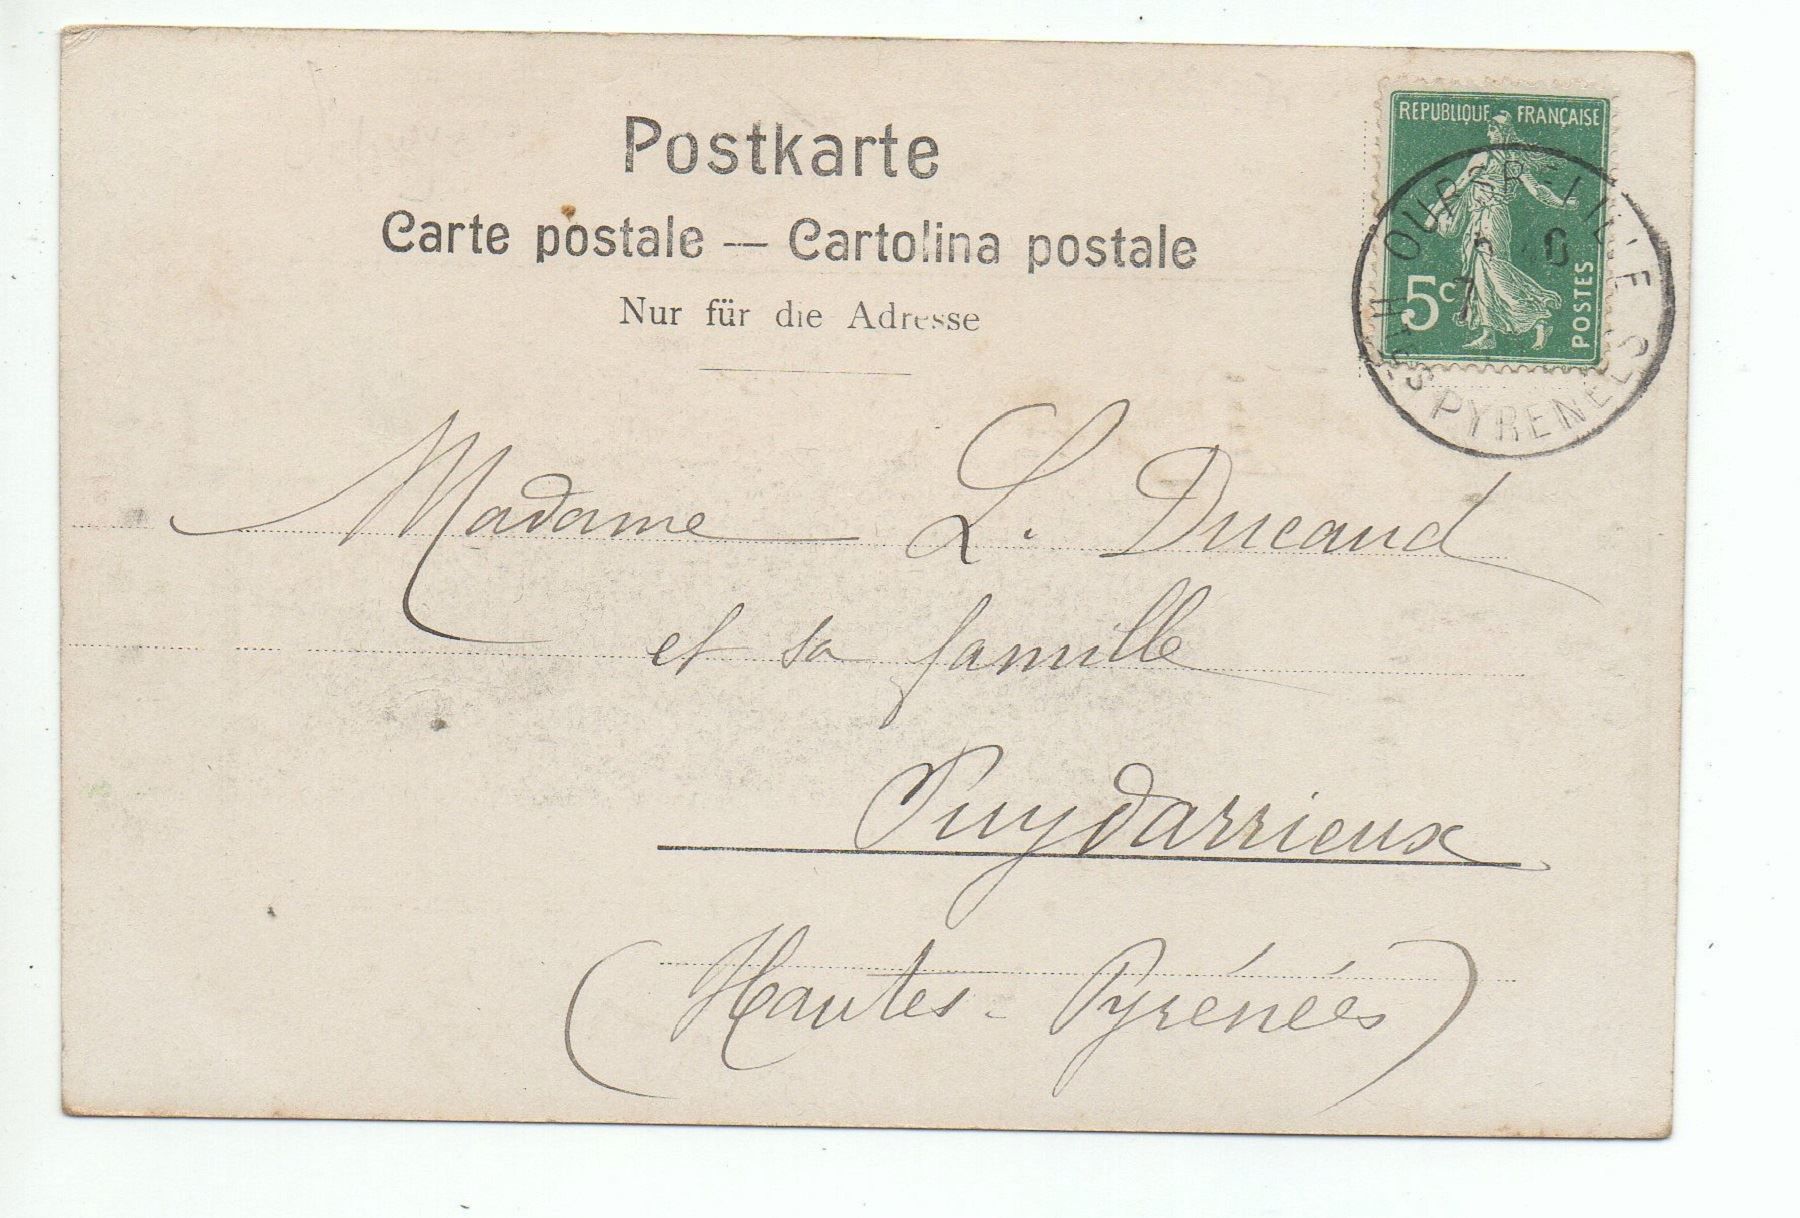 Postkarte
Carte postale — Cartolina postale
Nur für die Adresse
REPUBLIQUE FRANÇAISE
5c
POSTES
HTES PYRENEES
Madame L. Ducaud
et sa famille
Puydarrieux
(Hautes-Pyrénées)